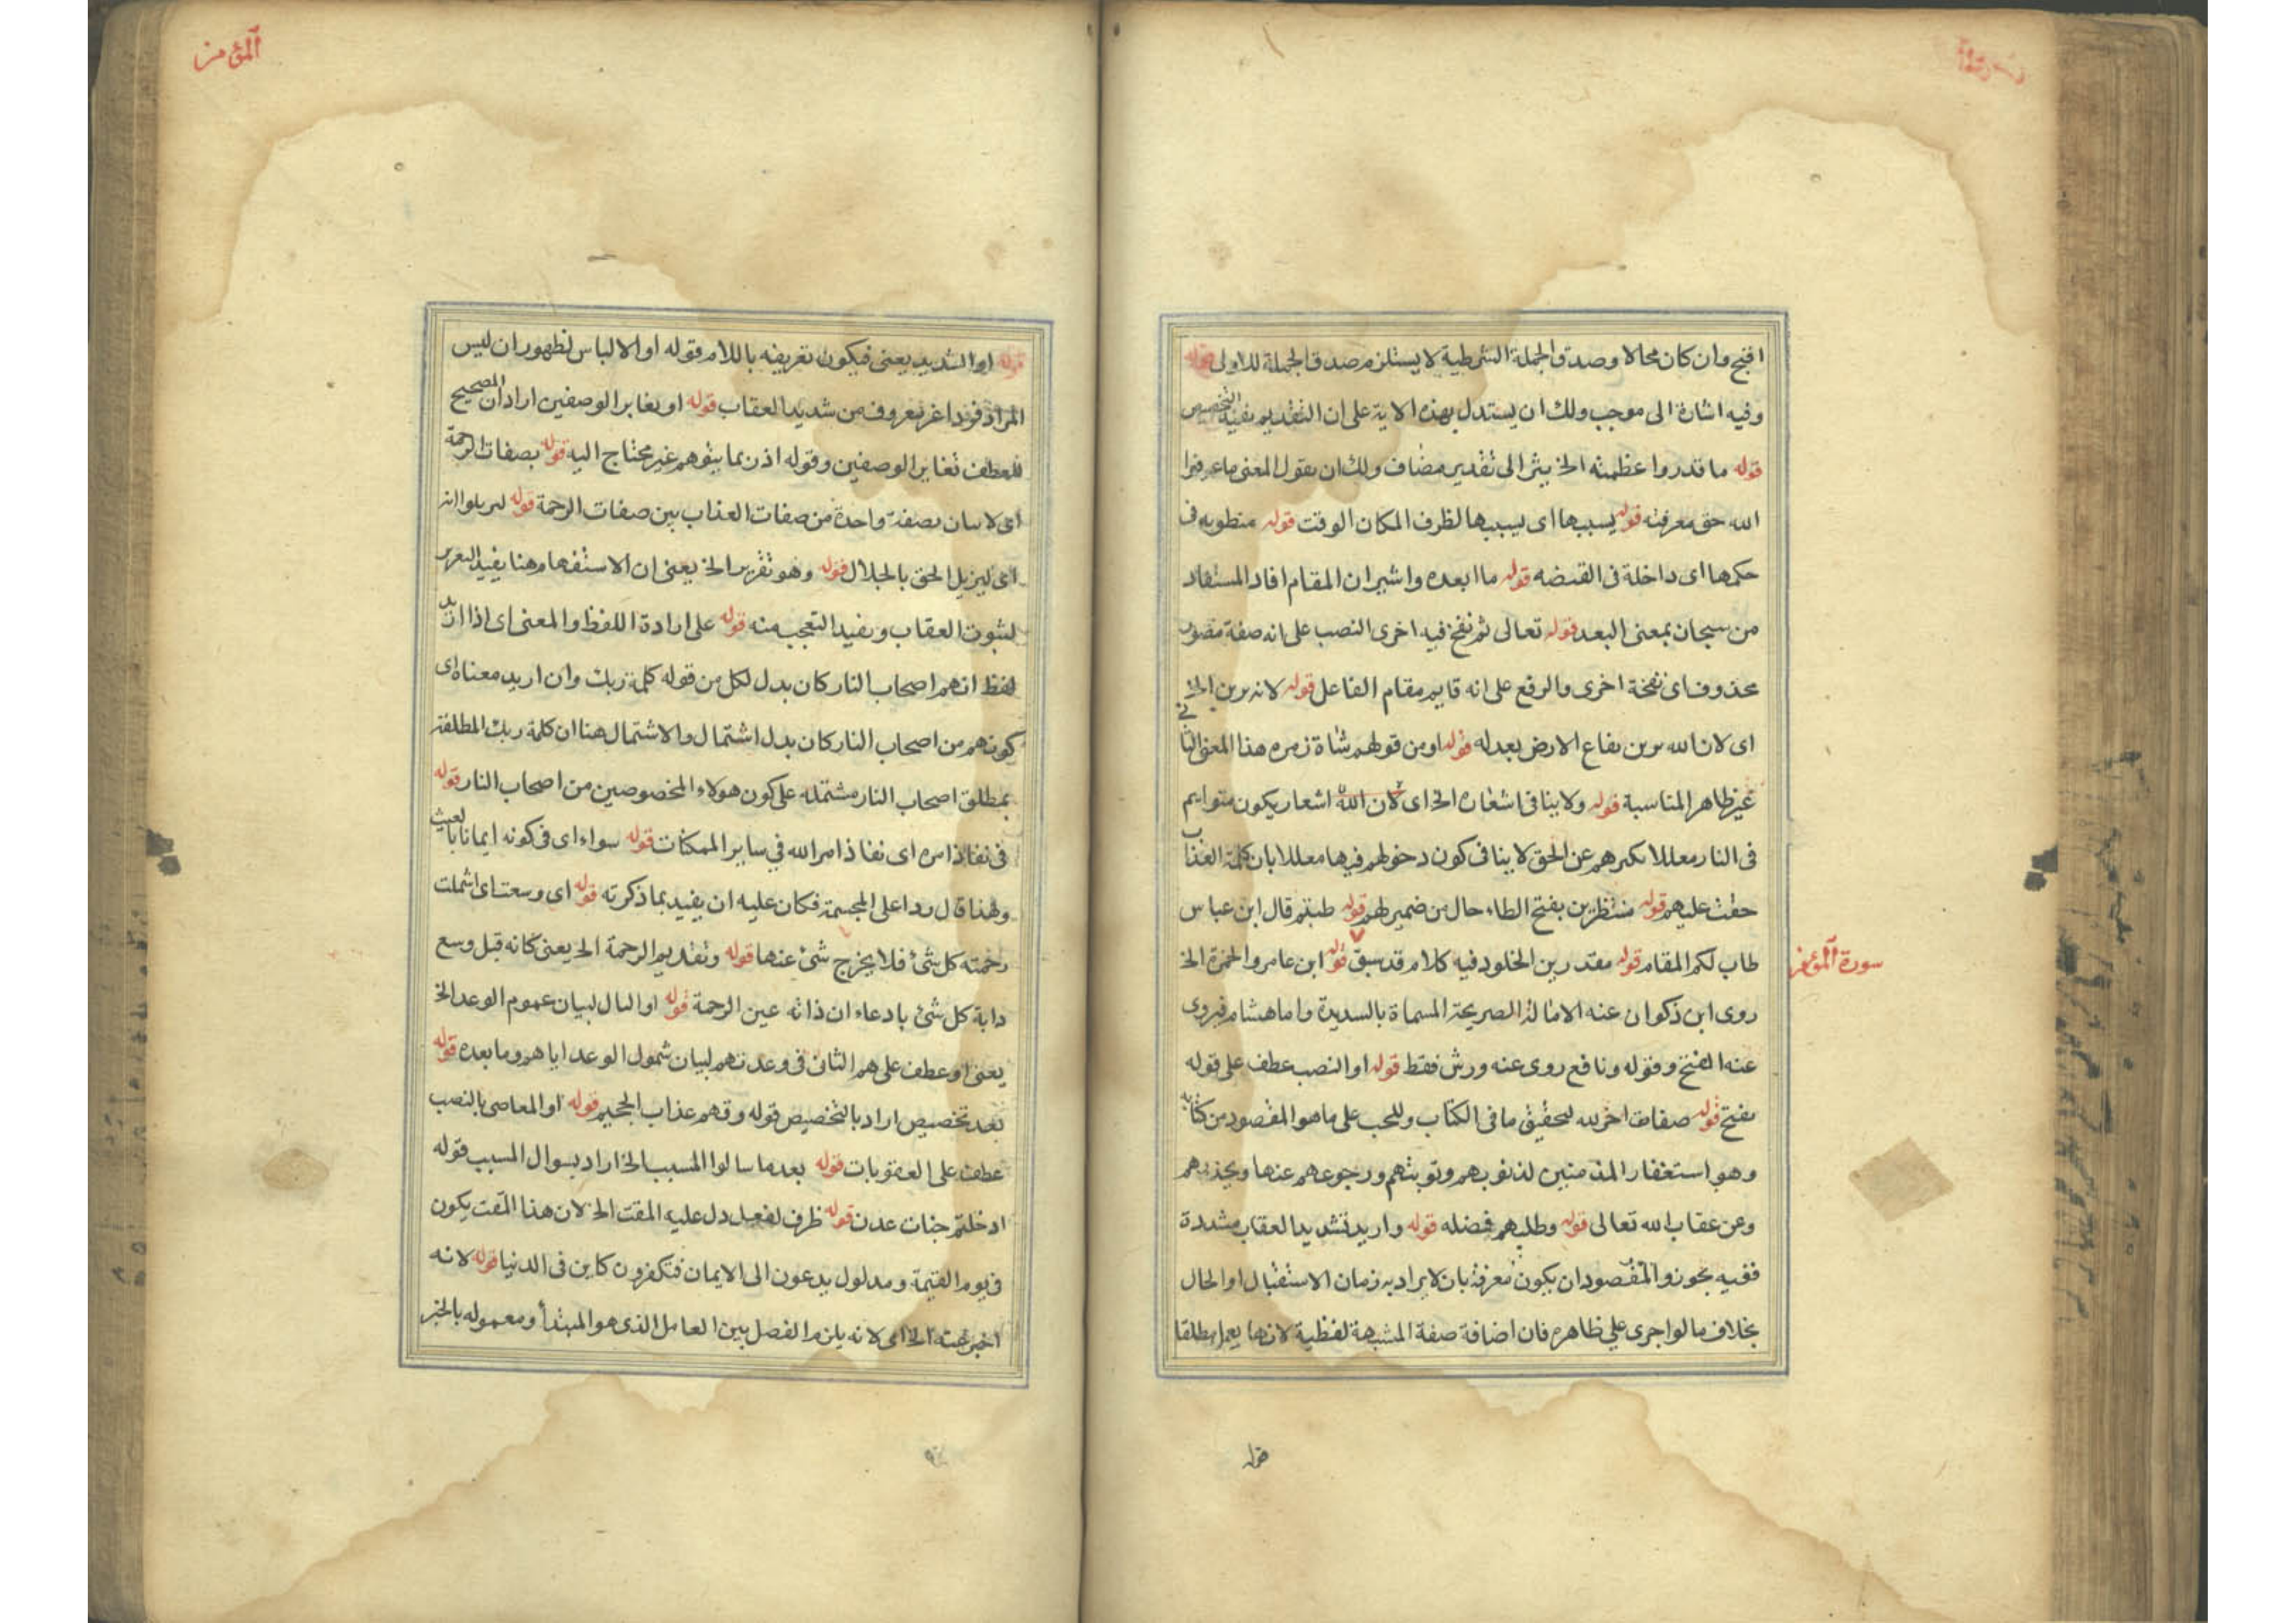 اقبح وان كان محالا وصدق الجملة الشرطية لا يستلزم صدق الجملة للاولى قوله
وفيه اشارة الى موجب ولك ان يستدل بهذه الاية على ان التقديم يفيد التخصيص
قوله ما قدروا عظمته الخ يشر الى تقدير مضاف ولك ان يقول المعنى ما عرفوا
الله حق معرفته قوله يسببها اى يسببها لظرف المكان الوقت قوله منطويه فى
حكمها اى داخلة فى القبضه قوله ما ابعده واشير ان المقام افاد المستفاد
من سبحان بمعنى البعد قوله تعالى ثم نفخ فيه اخرى النصب على انه صفة مصدر
محذوف اى نفخة اخرى والرفع على انه قايم مقام الفاعل قوله لانه يزين الخ
اى لان الله يزين بقاع الارض بعدله قوله او من قولهم شاة زمره هذا المعنى الثانى
غير ظاهر المناسبة قوله ولا ينافى اشعاره الخ اى لان الله اشعار يكون متوايم
فى النار معللا بكبرهم عن الحق لا ينافى كون دخولهم فيها معللا بان كلمة العذاب
حقت عليهم قوله منتظرين بفتح الطاء حال من ضمير لهم قوله طبتم قال ابن عباس
طاب لكم المقام قوله مقدرين الخلود فيه كلام قد سبق قوله ابن عامر والحمزة الخ
سورة المؤمن
روى ابن ذكوان عنه الامالة الصريحة المسماة بالسديدة واما هشام فيروى
عنه الفتح وقوله ونافع روى عنه ورش فقط قوله او النصب عطف على قوله
بفتح قوله صفات اخر لله لتحقيق ما فى الكتاب وللحب على ما هو المقصود من كتابه
وهو استغفار المذمنبين لذنوبهم وتوبتهم ورجوعهم عنها ويجذبهم
وعن عقاب الله تعالى قوله وطلبهم فضله قوله واريد تشديد العقاب مشددة
ففيه بجوز والمقصود ان يكون معرفة بان لا يراد به زمان الاستقبال او الحال
بخلاف ما لو اجرى على ظاهره فان اضافة صفة المشبهة لفظية لانها يعمل مطلقا
قوله
المؤمن
قوله او الشديد يعنى فيكون تعريفه باللام قوله او الالباس لظهور ان ليس
المراد فردا غر معروف من شديد العقاب قوله او تغاير الوصفين اراد ان المصحيح
للعطف تغاير الوصفين وقوله اذ ربما يتوهم غير محتاج اليه قوله بصفات الرحمة
اى لا بيان بصفة واحدة من صفات العذاب بين صفات الرحمة قوله ليريلوا انه
اى ليزيل الحق بالجلال قوله وهو تقرير الخ يعنى ان الاستفهام هنا يفيد التعرير
لثبوت العقاب ويفيد التعجب منه قوله على ارادة اللفظ والمعنى اى اذا اريد
لفظ انهم اصحاب النار كان بدل لكل من قوله كلمة ربك وان اريد معناه اى
كونهم من اصحاب النار كان بدل اشتمال والاشتمال هنا ان كلمة ربك المطلقة
بمطلق اصحاب النار مشتمله على كون هولاء المخصوصين من اصحاب النار قوله
فى نفاذ امره اى نفاذ امر الله فى ساير الممكنات قوله سواء اى فى كونه ايمانا بالغيب
ولهذا قال ردا على المجسمة فكان عليه ان يفيد بما ذكرته قوله اى وسعت اى اشملت
رحمته كل شئ فلا يخرج شئ عنها قوله وتقديم الرحمة الخ يعنى كانه قيل وسع
دابة كل شئ بادعاء ان ذاته عين الرحمة قوله او البال لبيان عموم الوعد الخ
يعنى او عطف على هم الثان فى وعدتهم لبيان شمول الوعد اياهم وما بعده قوله
بعد تخصيص اراد بالتخصيص قوله وقهم عذاب الجحيم قوله او المعاصى بالنصب
عطف على العقوبات قوله بعد ما سالوا المسبب الخ اراد بسوال المسبب قوله
ادخلتم جنات عدن قوله ظرف لفعل دل عليه المقت الخ لان هذا المقت يكون
فى يوم القيمة ومدلول يدعون الى الايمان فتكفرون كاين فى الدنيا قوله لانه
اخبر عنه الخ اى لانه يلزم الفصل بين العامل الذى هو المبتدأ ومعموله بالخبر